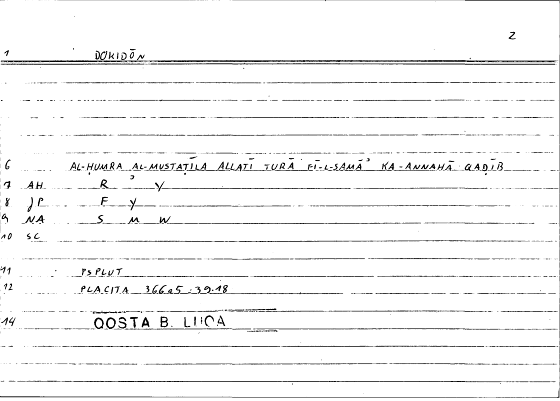 2
1 DOKIDŌN
6 AL-ḤUMRA AL-MUSTAṬĪLA ALLATĪ TURĀ FĪ-L-SAMĀʾ KA-ANNAHĀ QAḌĪB
7 AH R ʾ Y
8 JP F Y
9 NA S M W
10 SC
11 PSPLUT
12 PLACITA 366a5 :39.18
14 QOSTA B. LUCA